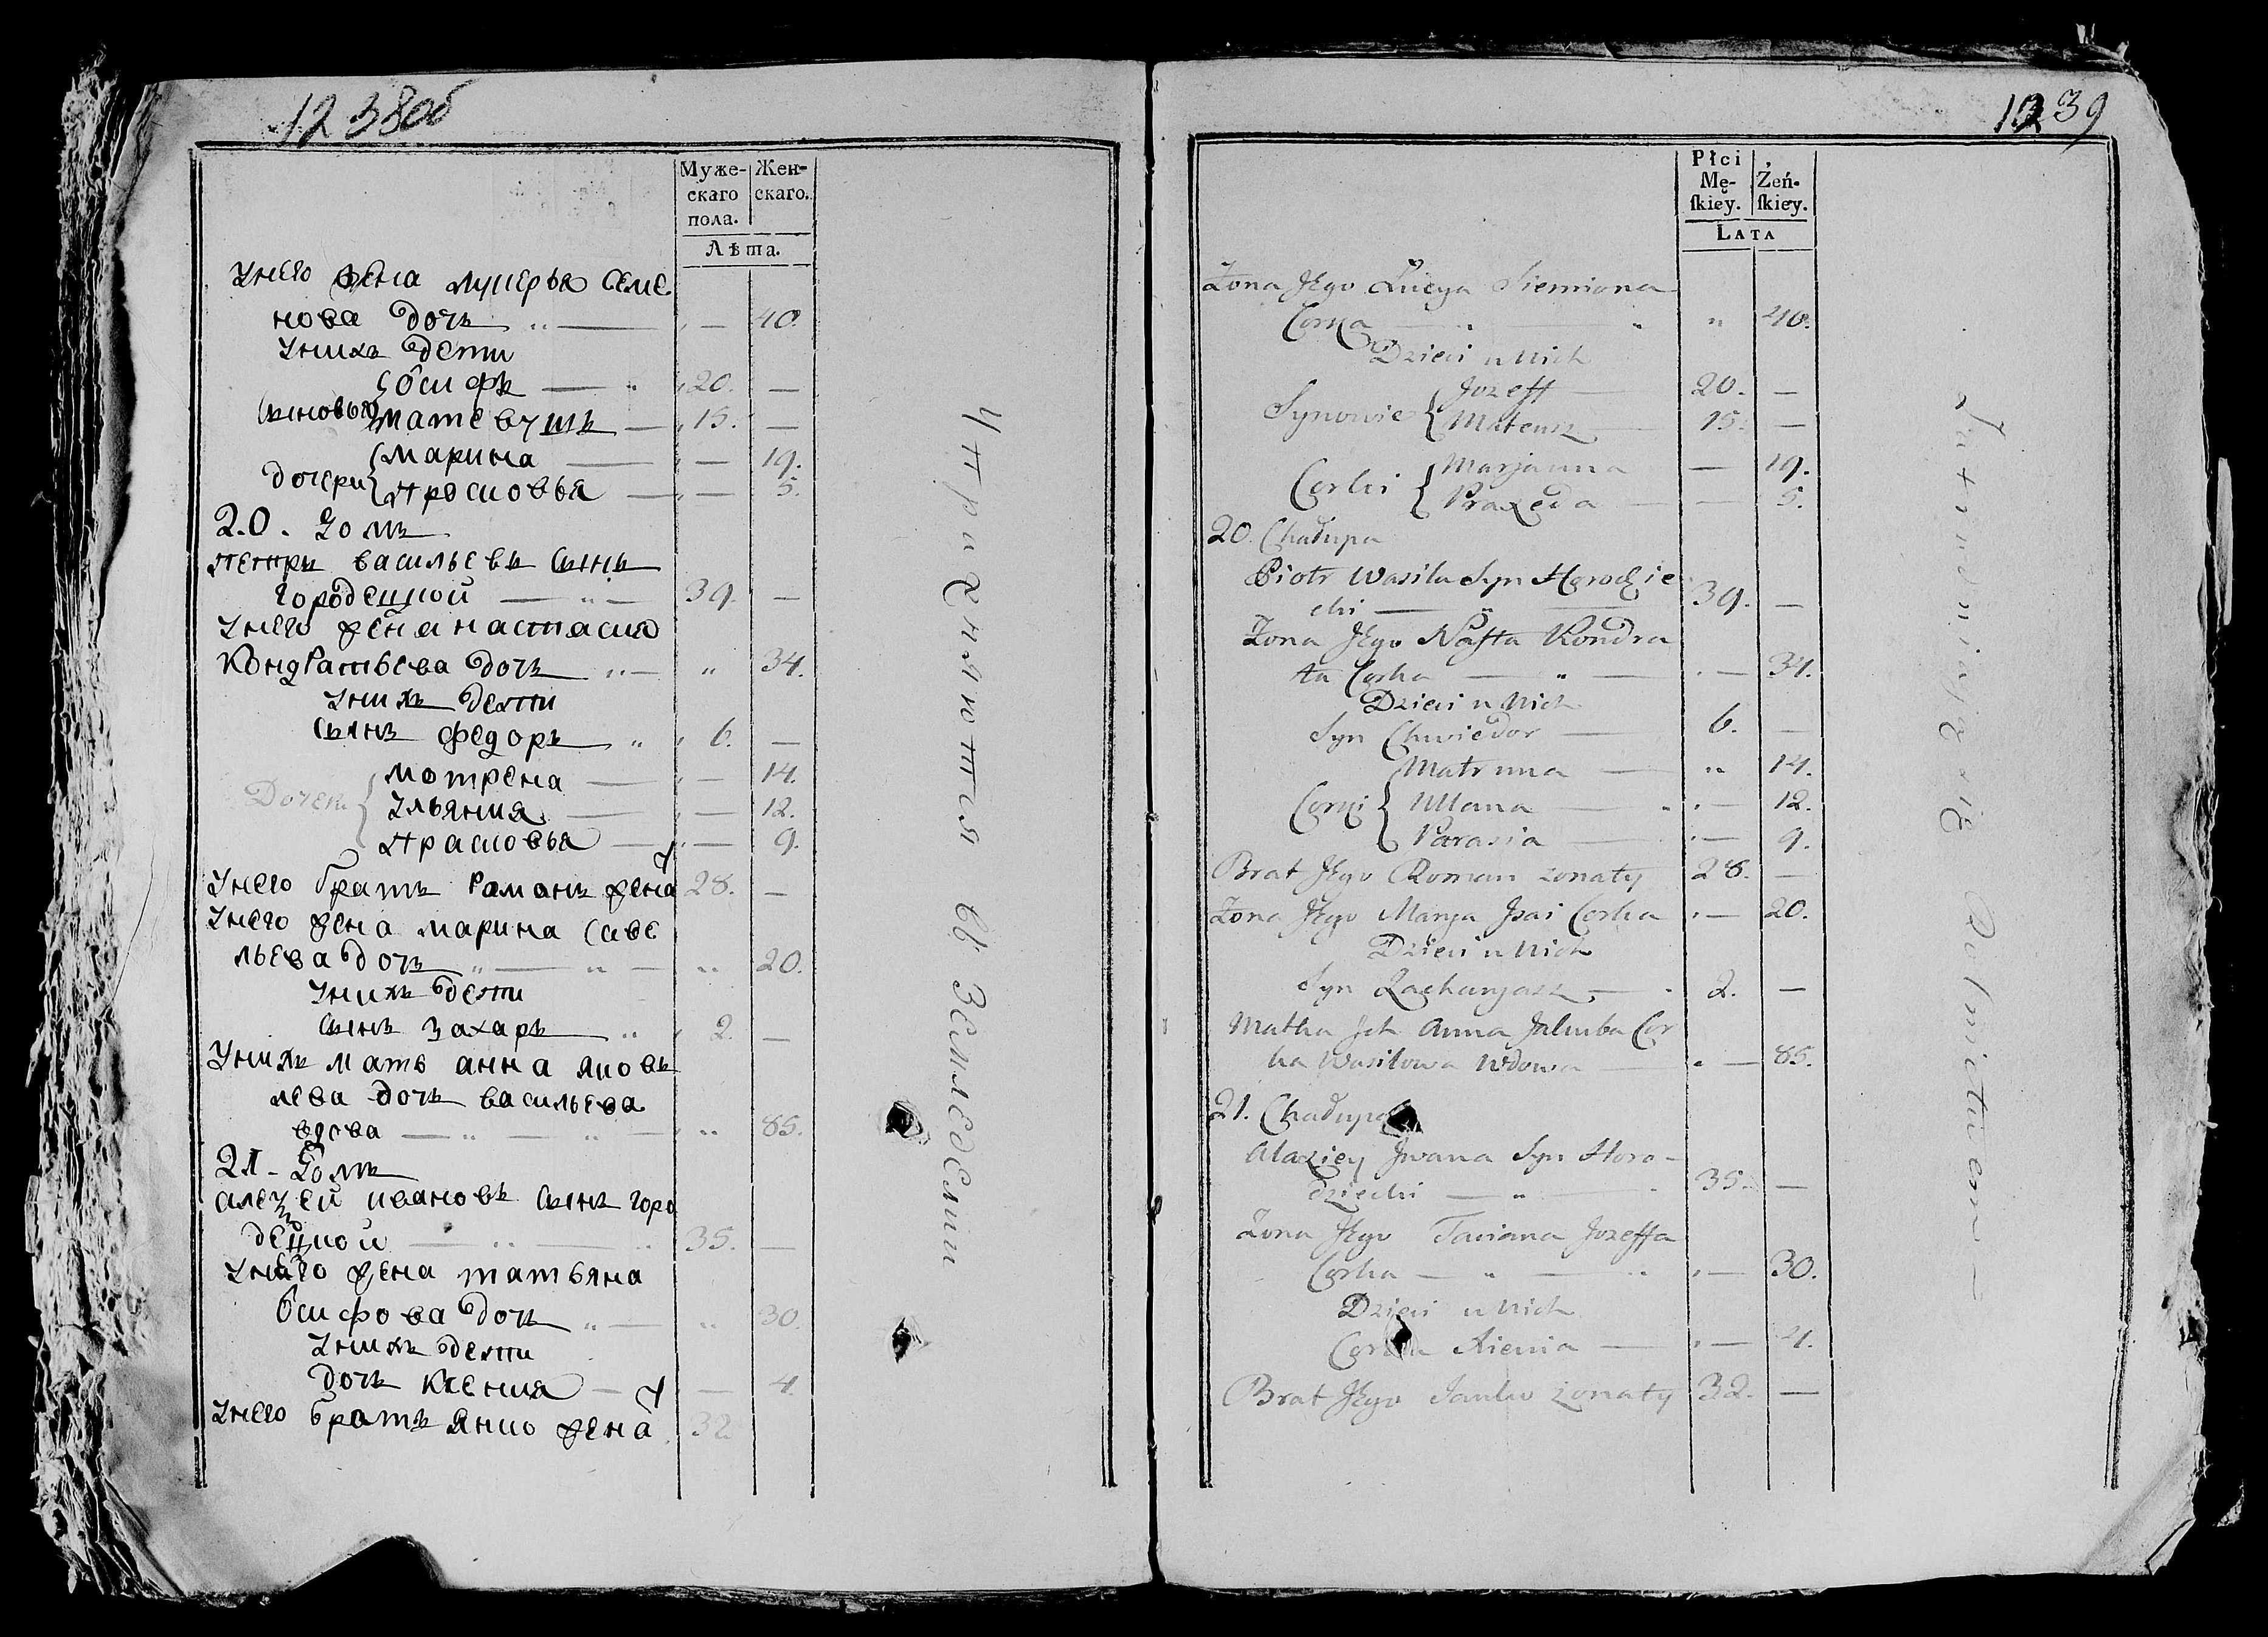 12 38об
Муже-
скаго
пола.
Жен-
скаго.
Лѣта.
унего жена лукерья Семе
нова дочь 40.
унихъ дети
осифъ 20.
Сыновья матевушъ 15.
марина 19.
дочери прасковья 5.
20. домъ
петръ васильевъ сынъ
городецкой 39.
унего жена настасия
кондратьева дочь 34.
унихъ дети
сынъ федоръ 6.
мотрена 14.
Дочери ульяния 12.
прасковья 9.
унего братъ романъ жена 28.
унего жена марина саве
льева дочь 20.
унихъ дети
сынъ захаръ 2.
унихъ мать анна яковъ
лева дочь васильева
вдова 85.
21. домъ
алекзей ивановъ сынъ горо
децкой 35.
унего жена татьяна
осифова дочь 30.
унихъ дети
дочь ксения 4.
унего братъ янко жена 32.
Упражняются въ Земледелии
1239
Płci
Mę-
ſkiey.
Żeń-
ſkiey.
LATA
Zona Jego Łucya Siemiona
Corka 40.
Dzieci u Nich
Jozeff 20.
Synowie Mateusz 15.
Marjanna 19.
Corki Praxeda 5.
20. Chałupa
Piotr Wasila Syn Horodzie
cki 39.
Zona Jego Nasta Kondra
ta Corka 34.
Dzieci u Nich
Syn Chwiedor 6.
Matruna 14.
Corki Ullana 12.
Parasia 9.
Brat Jego Roman zonaty 28.
Zona Jego Marya Jsai Corka 20.
Dzieci u Nich
Syn Zacharyasz 2.
Matka Jch Anna Jakuba Cor
ka Wasilowa Wdowa 85.
21. Chałupa
Alaxiey Jwana Syn Horo-
dziecki 35.
Zona Jego Taciana Jozeffa
Corka 30.
Dzieci u Nich
Corka Xienia 4.
Brat Jego Janko zonaty 32.
Zatrudniaią się Rolnictwem